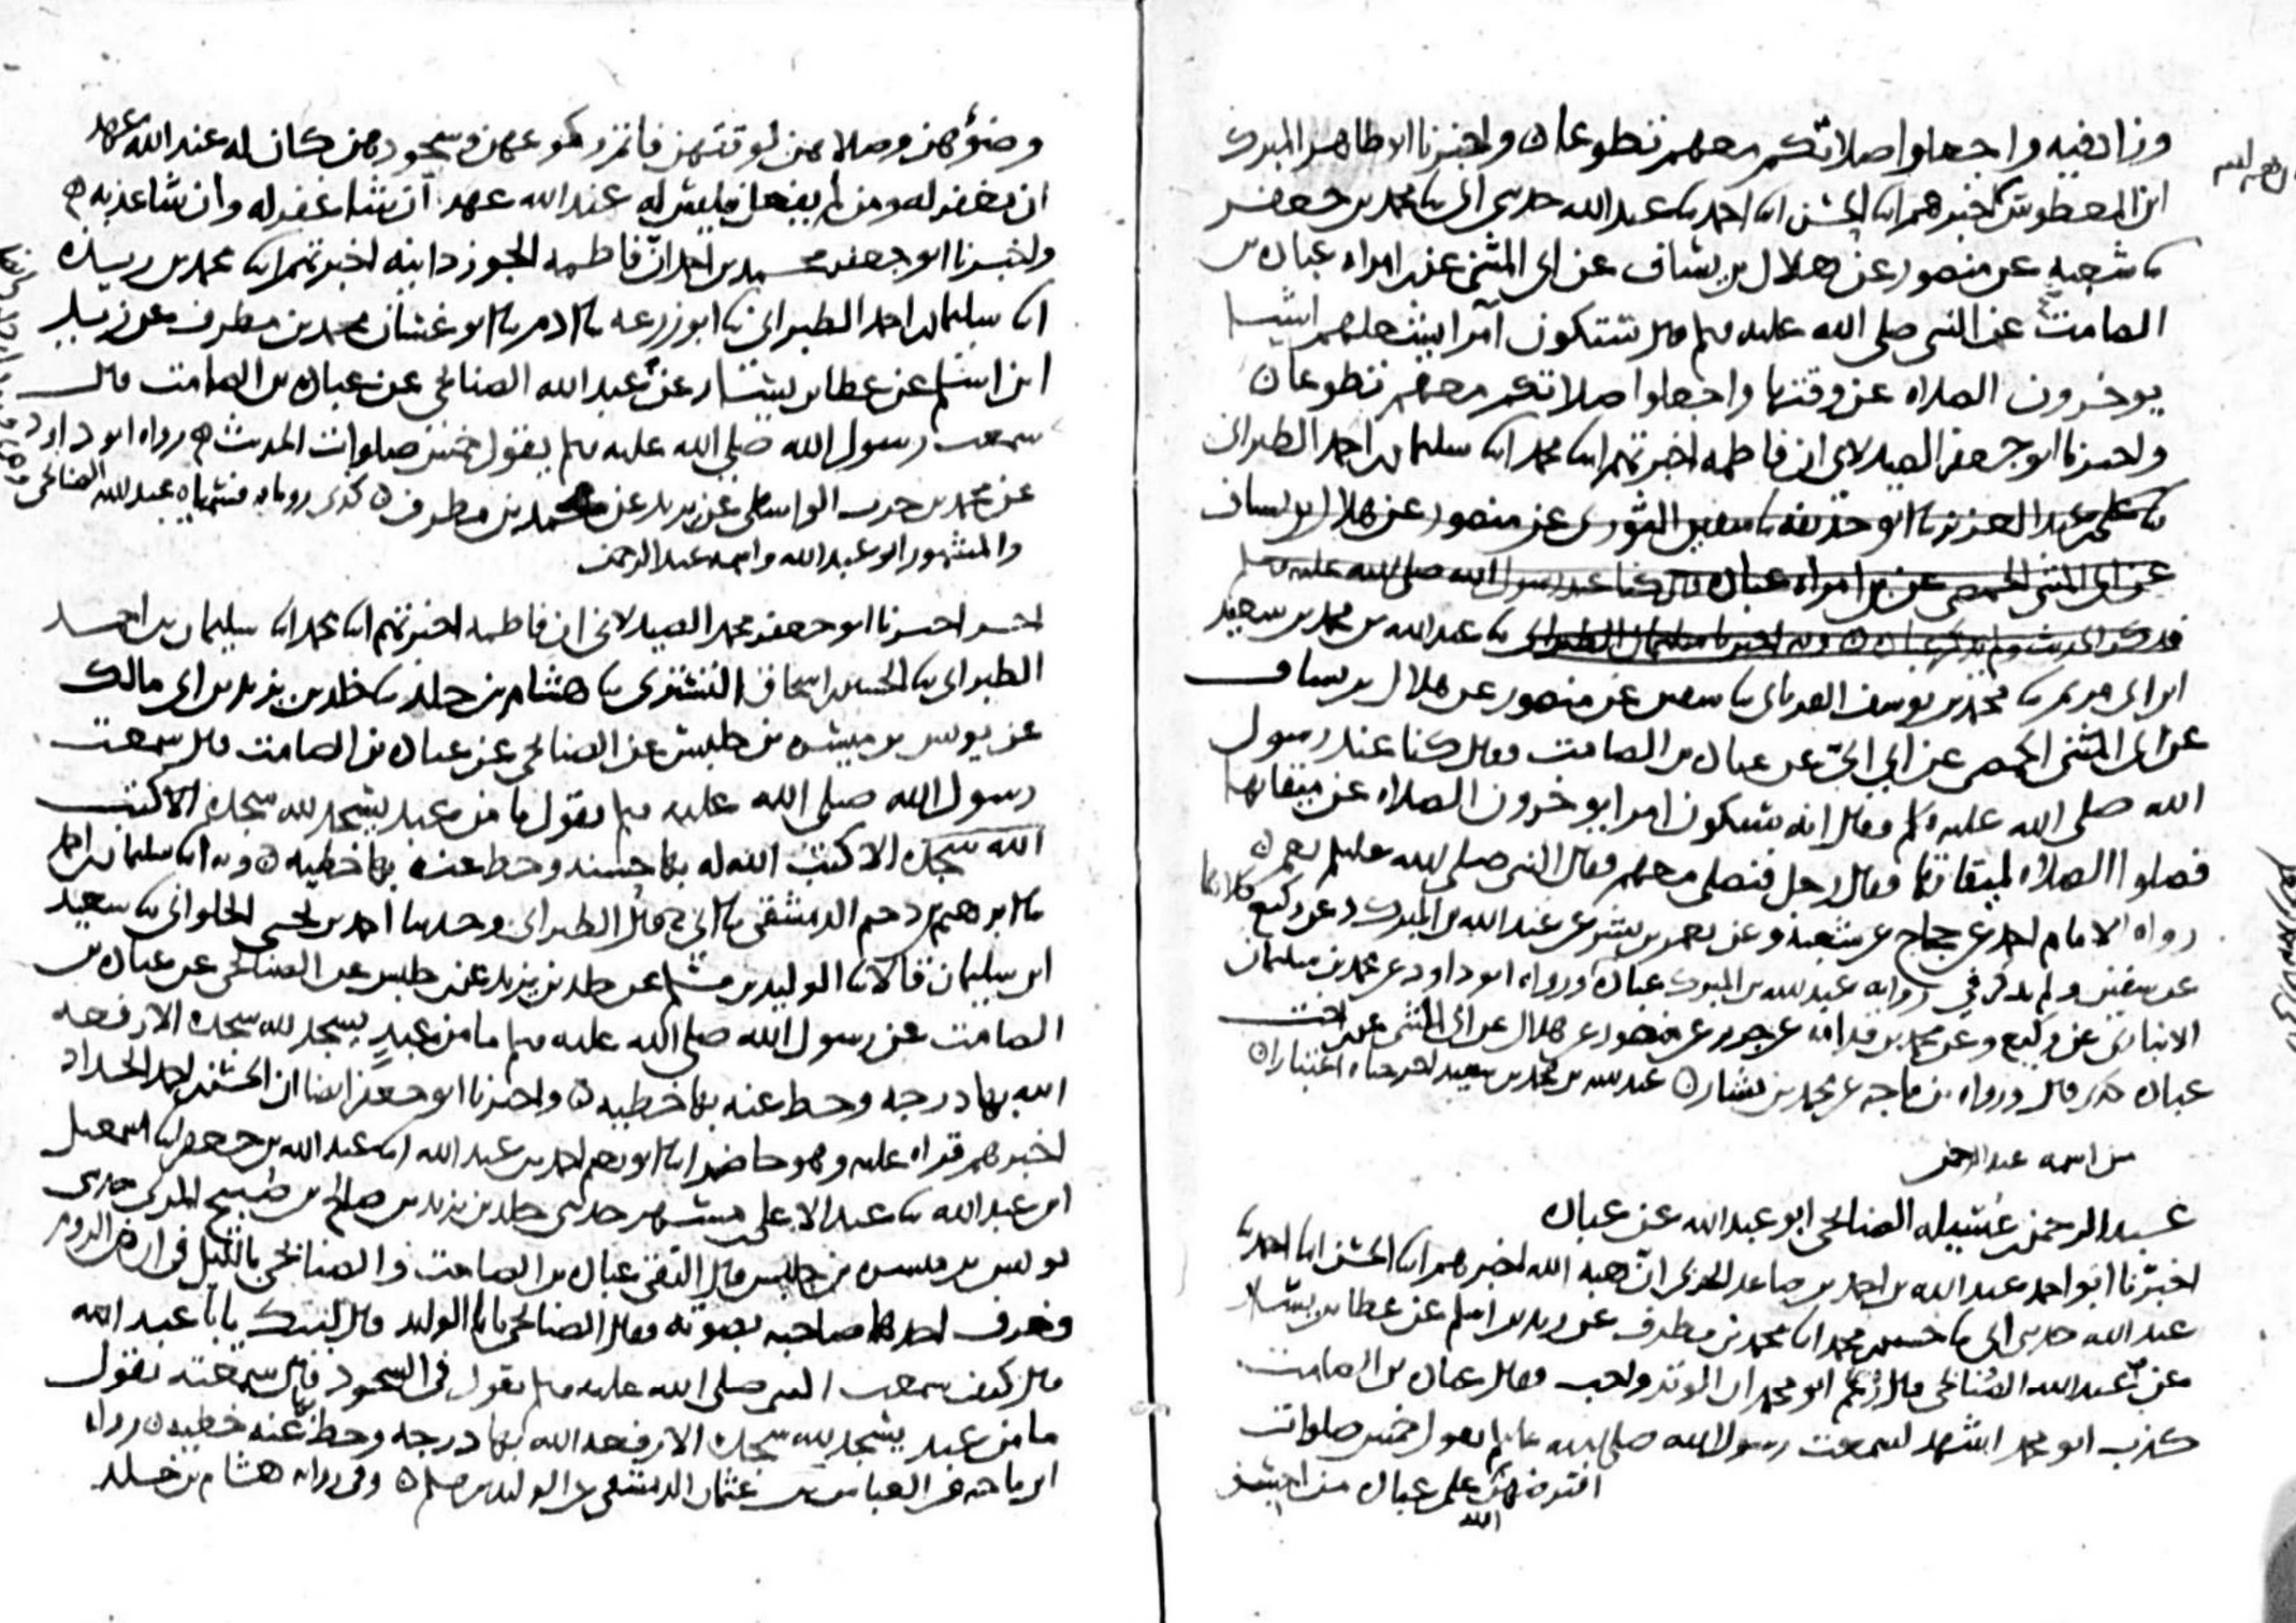 وزاد فيه واجعلوا صلاتكم معهم تطوعا ن واخبرنا ابو طاهر المبرك
ابن المعطوش اخبرهم ابنا الحسن ابنا احمد ثنا عبد الله حدثني ابي ثنا محمد بن جعفر
ثنا شعبه عن منصور عن هلال بن يساف عن ابي المثنى عن ابن امراه عباده بن
الصامت عن النبي صلى الله عليه وسلم قال ستكون امرا يشغلهم اشيا
يوخرون الصلاه عن وقتها واجعلوا صلاتكم معهم تطوعا ن
واخبرنا ابو جعفر الصيدلاني ان فاطمه اخبرتهم ابنا محمد ابنا سليمان بن احمد الطبراني
ثنا علي بن عبد العزيز ثنا ابو حذيفه ثنا سفين الثوري عن منصور عن هلال بن يساف
عن ابي المثنى الحمصي عن ابن امراه عباده قال كنا عند رسول الله صلى الله عليه وسلم
فذكر الحديث ولم يذكر عباده ن وبه اخبرنا سليمان الطبراني ثنا عبد الله بن محمد بن سعيد
ابن ابي مريم ثنا محمد بن يوسف الفريابي ثنا سفين عن منصور عن هلال بن يساف
عن ابي المثنى الحمصي عن ابي ابي عن عباده بن الصامت وقال كنا عند رسول
الله صلى الله عليه وسلم فقال انه سيكون امرا يوخرون الصلاه عن ميقاتها
فصلوا الصلاه لميقاتها فقال رجل فنصلي معهم فقال النبي صلى الله عليه وسلم نعم ن
رواه الامام احمد عن حجاج عن شعبه وعن يعمر بن بشر عن عبد الله بن المبرك وعن وكيع كلاهما
عن سفين ولم يذكر في روايه عبد الله بن المبرك عباده ورواه ابو داود عن محمد بن سليمان
الانباري عن وكيع وعن محمد بن قدامه عن جرير عن منصور عن هلال عن ابي المثنى عن ابن اخت
عباده كذا قال ورواه بن ماجه عن محمد بن بشار ن عبد الله بن محمد بن سعيد اخرجناه اعتبارا ن
من اسمه عبد الرحمن
عبد الرحمن بن عسيله الصنابحي ابو عبد الله عن عباده
اخبرنا ابو احمد عبد الله بن احمد بن صاعد الحربي ان هبه الله اخبرهم ابنا الحسن ابنا احمد ثنا
عبد الله حدثني ابي ثنا حسين بن محمد ابنا محمد بن مطرف عن زيد بن اسلم عن عطا بن يسار
عن عبد الله الصنابحي قال زعم ابو محمد ان الوتر واجب فقال عباده بن الصامت
كذب ابو محمد اشهد لسمعت رسول الله صلى الله عليه وسلم يقول خمس صلوات
افترضهن الله على عباده من احسن
وضوهن وصلاهن لوقتهن فاتم ركوعهن وسجودهن كان له عند الله عهد
ان يغفر له ومن لم يفعل فليس له عند الله عهد ان شا غفر له وان شا عذبه ن
واخبرنا ابو جعفر محمد بن احمد ان فاطمه الجوزدانيه اخبرتهم ابنا محمد بن ريذه
ابنا سليمان بن احمد الطبراني ثنا ابو زرعه ثنا ادم ثنا ابو غسان محمد بن مطرف عن زيد
ابن اسلم عن عطا بن يسار عن عبد الله الصنابحي عن عباده بن الصامت قال
سمعت رسول الله صلى الله عليه وسلم يقول خمس صلوات الحديث ن رواه ابو داود
عن محمد بن حرب الواسطي عن يزيد عن محمد بن مطرف ن كذى روياه فسمياه عبد الله الصنابحي
والمشهور ابو عبد الله واسمه عبد الرحمن
اخبرنا ابو جعفر محمد الصيدلاني ان فاطمه اخبرتهم ابنا محمد ابنا سليمان بن احمد
الطبراني ثنا الحسين بن اسحاق التستري ثنا هشام بن خلد ثنا خلد بن يزيد بن ابي مالك
عن يونس بن ميسره بن حلبس عن الصنابحي عن عباده بن الصامت قال سمعت
رسول الله صلى الله عليه وسلم يقول ما من عبد يسجد لله سجده الا كتب
الله سجده الا كتب الله له بها حسنه وحط عنه بها خطيه ن وبه ابنا سليمان بن احمد
ثنا ابرهيم بن دحيم الدمشقي ثنا ابي ح قال الطبراني وحدثنا احمد بن يحيى الحلواني ثنا سعيد
ابن سليمان قالا ثنا الوليد بن مسلم عن خلد بن يزيد عن حلبس عن الصنابحي عن عباده بن
الصامت عن رسول الله صلى الله عليه وسلم ما من عبد يسجد لله سجده الا رفعه
الله بها درجه وحط عنه بها خطيه ن واخبرنا ابو جعفر ايضا ان الحسن بن احمد الحداد
اخبرهم قراه عليه وهو حاضر ابنا ابو نعيم احمد بن عبد الله ابنا عبد الله بن جعفر ثنا اسمعيل
ابن عبد الله ثنا عبد الاعلى بن مسهر حدثني خلد بن يزيد بن صالح بن صبيح المري حدثني
يونس بن ميسره بن حلبس قال التقى عباده بن الصامت والصنابحي بالليل في ارض الروم
وعرف احدهما صاحبه بصوته فقال الصنابحي يابا الوليد قال لبيك يابا عبد الله
قال كيف سمعت النبي صلى الله عليه وسلم يقول في السجود قال سمعته يقول
ما من عبد يسجد لله سجده الا رفعه الله بها درجه وحط عنه خطيه ن رواه
ابن ماجه عن العباس بن عثمان الدمشقي عن الوليد بن مسلم ن وفي روايه هشام بن خلد